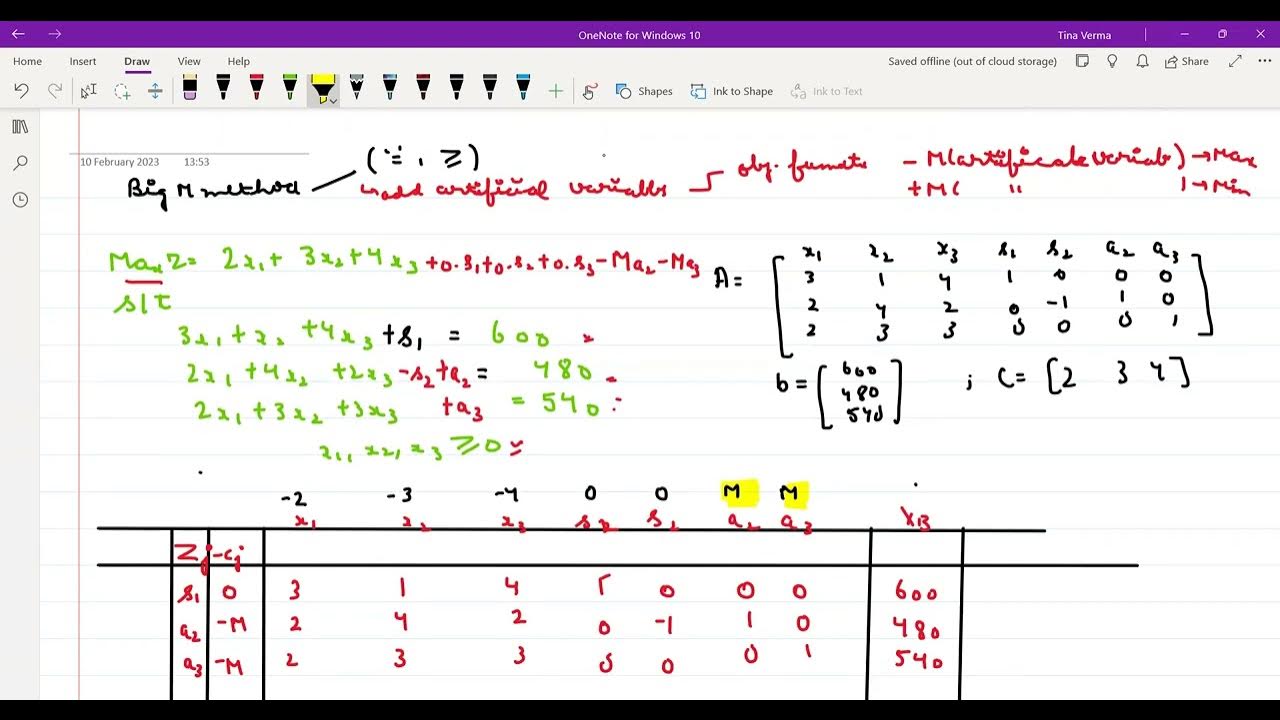 OneNote for Windows 10
Tina Verma
Home Insert Draw View Help
Saved offline (out of cloud storage)
Share
Shapes
Ink to Shape
Ink to Text
10 February 2023 13:53
Big M method
(=, ≥)
↳add artificial variables
obj.
- M(artificale variab) → Max
+M( " ) → Min
Max Z = 2x₁ + 3x₂ + 4x₃ + 0.s₁ + 0.s₂ + 0.s₃ - Ma₂ - Ma₃
s/t
3x₁ + x₂ + 4x₃ + s₁ = 600
2x₁ + 4x₂ + 2x₃ - s₂ + a₂ = 480
2x₁ + 3x₂ + 3x₃ + a₃ = 540
x₁, x₂, x₃ ≥ 0
x₁ x₂ x₃ s₁ s₂ a₂ a₃
A =
3 1 4 1 0 0 0
2 4 2 0 -1 1 0
2 3 3 0 0 0 1
b = [600 480 540] ; C = [2 3 4]
-2 -3 -4 0 0 M M
x₁ x₂ x₃ a₂ a₃ XB
Zj-cj
s₁ 0 3 1 4 1 0 0 0 600
a₂ -M 2 4 2 0 -1 1 0 480
a₃ -M 2 3 3 0 0 0 1 540